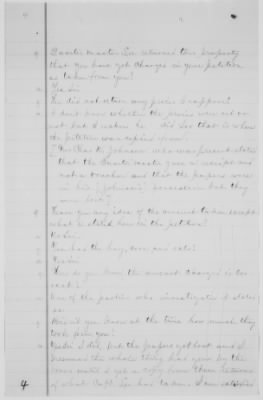 q Quarter master Lee returned this property
that you have got charged in your petition
as taken from you?
a Yes sir
q He did not return any prices I suppose?
a I don't know whether the prices were set or
not but I reckon he did for that is where
the petition was copied from.
[Mr. Johnson who was present states
that the Quarter master gave a receipt and
not a voucher and that the papers were
in his [Johnson's] possession but they
were lost.]
q Have you any idea of the amount taken except
what is stated here in the petition?
a No sir.
q You had the hay, corn and oats?
a Yes sir
q How do you know the amount charged is
a One of the parties who investigated it stated
so.
q Did you know at the time how much they
took from you?
a Yes sir I did, but the papers got lost and I
the whole thing had gone by the
until I got a copy from those returns
of what Capt. Lee had taken. I am satisfied
4